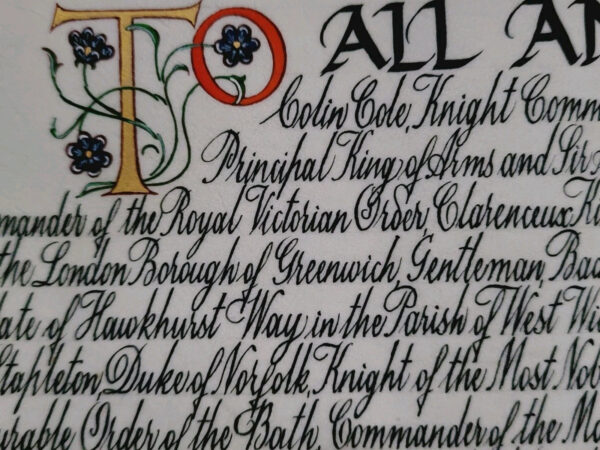 TO ALL AN
Colin Cole, Knight Comm
Principal King of Arms and Sir
mander of the Royal Victorian Order, Clarenceux K
the London Borough of Greenwich, Gentleman, Bac
late of Hawkhurst Way in the Parish of West Wi
Stapleton, Duke of Norfolk, Knight of the Most Nob
urable Order of the Bath, Commander of the Mo